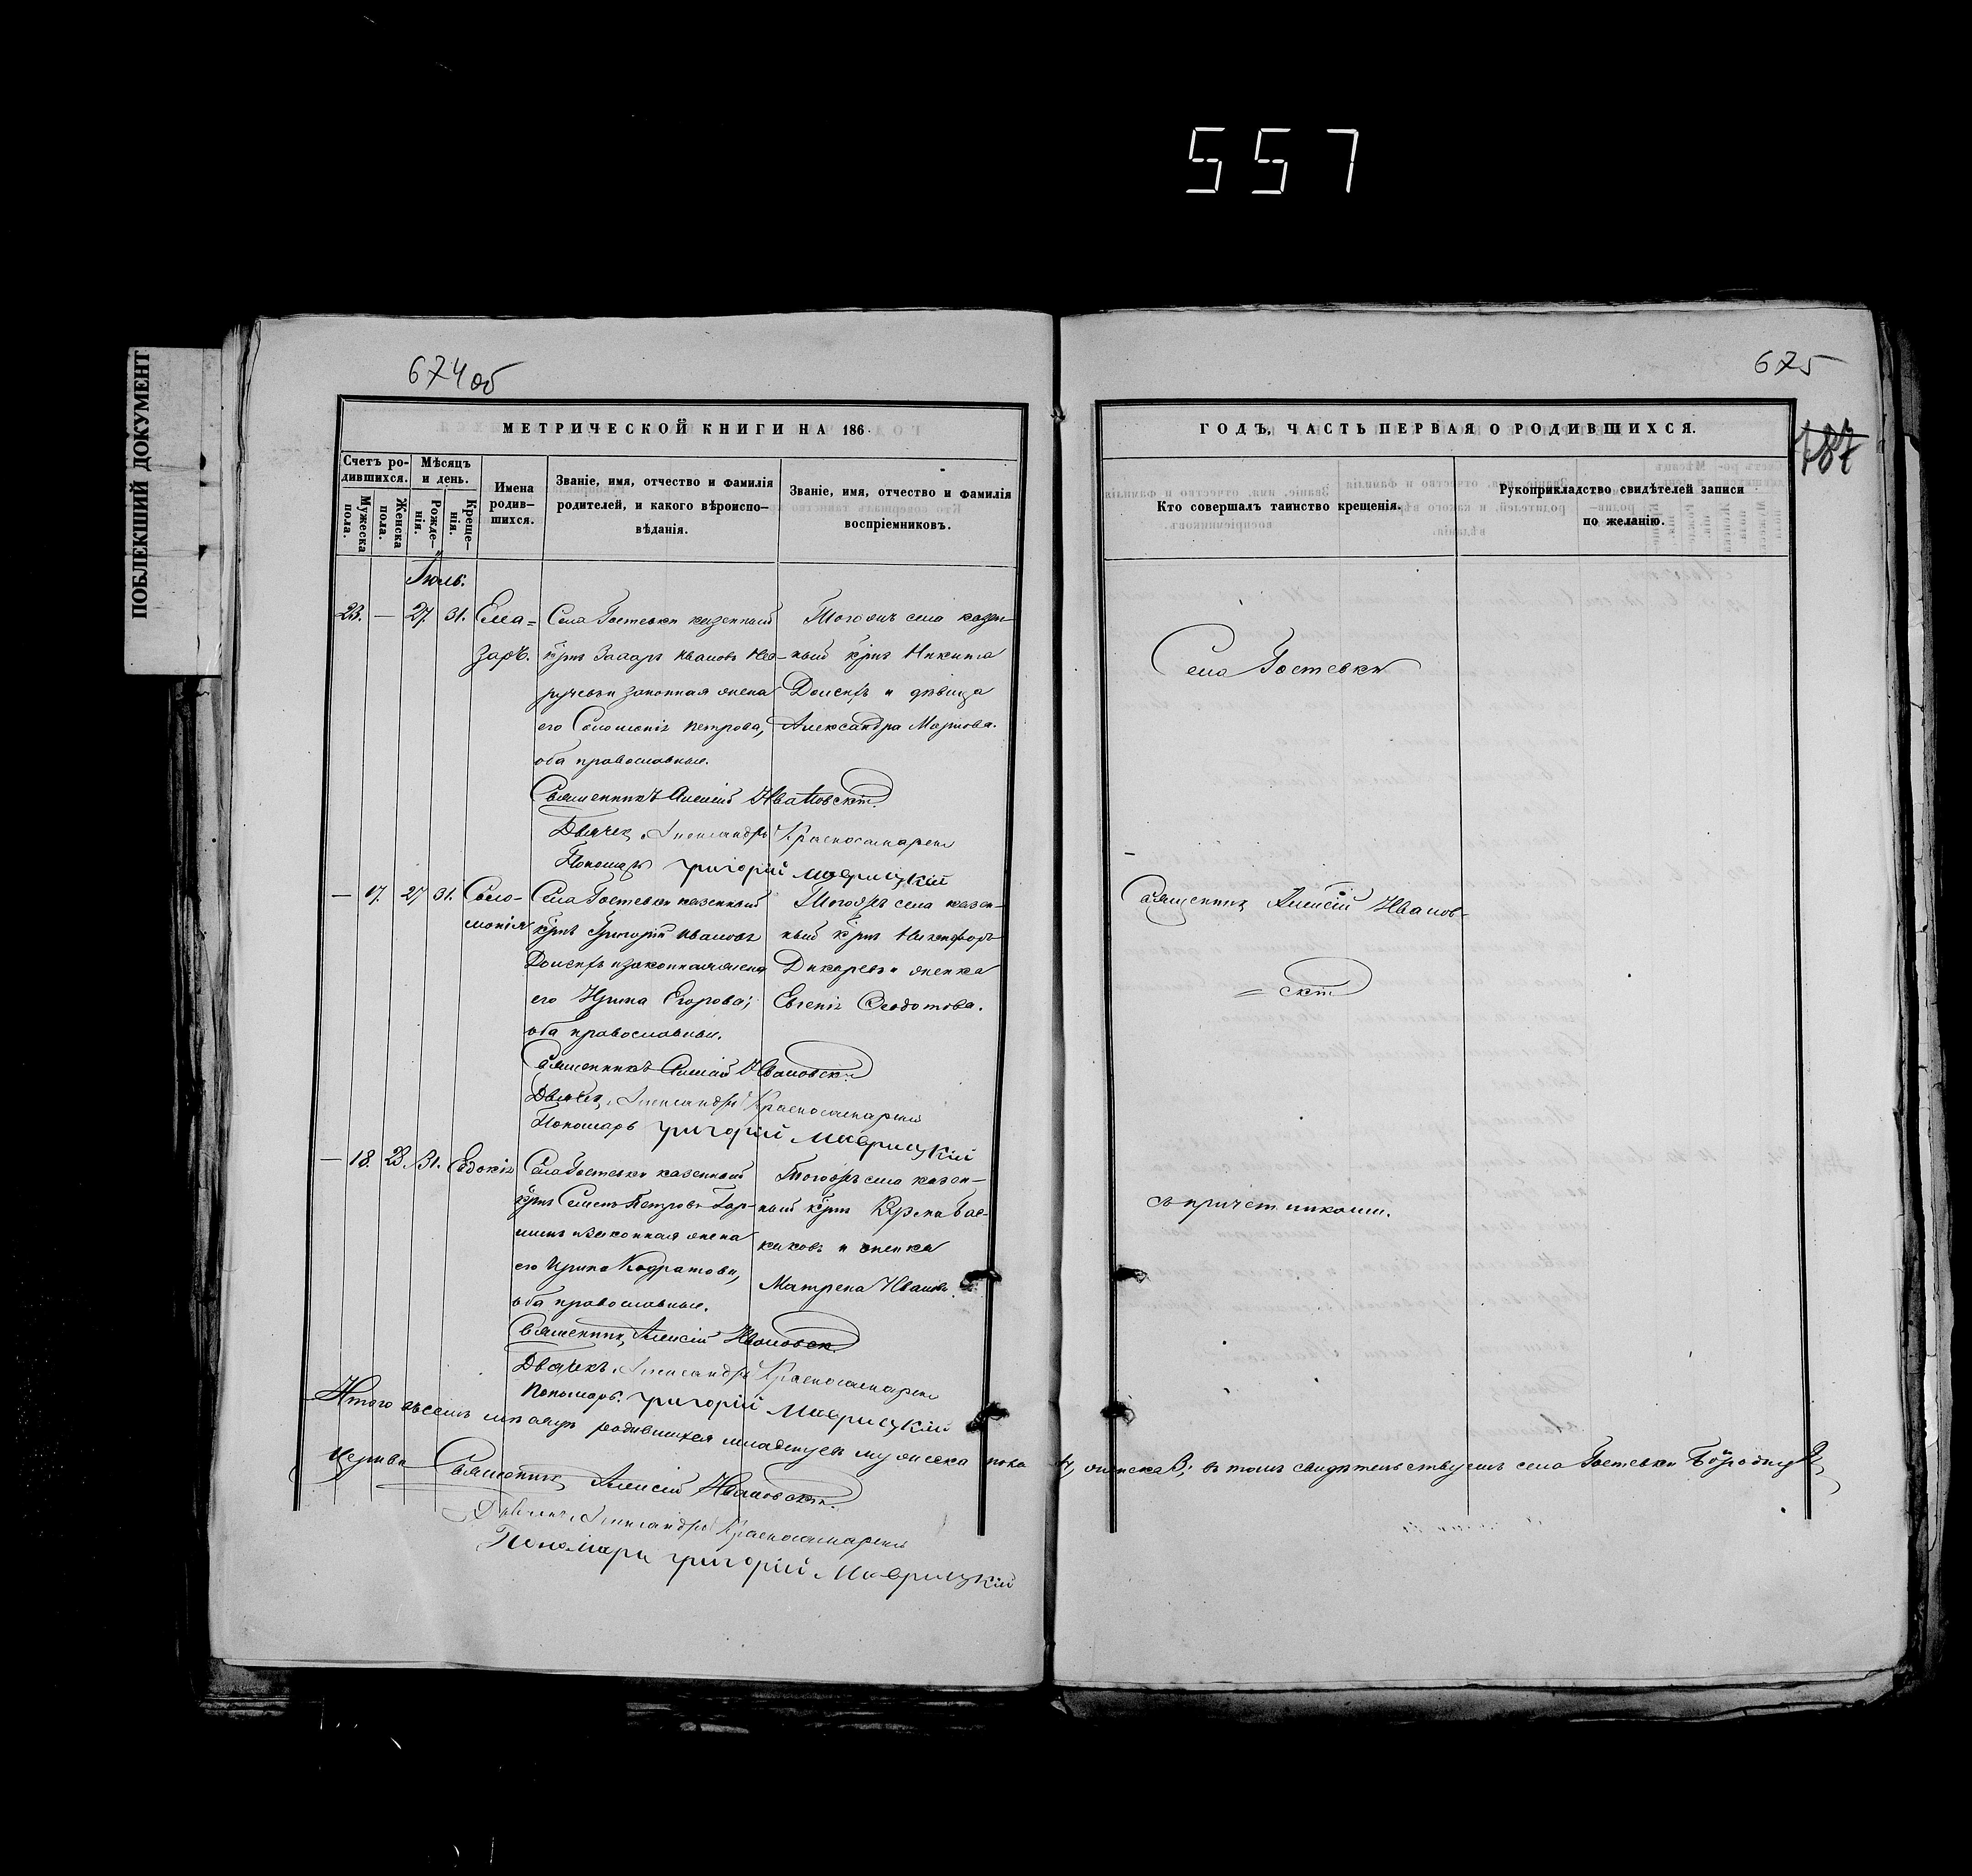 557
ПОБЛЕКШИЙ ДОКУМЕНТ
674 об
МЕТРИЧЕСКОЙ КНИГИ НА 186
Счетъ ро-
дившихся.
Мужеска
пола.
Женска
пола.
Мѣсяцъ
и день.
Рожде-
нія.
Креще-
нія.
Имена
родив-
шихся.
Званіе, имя, отчество и фамилія
родителей, и какого вѣроиспо-
вѣданія.
Званіе, имя, отчество и фамилія
воспріемниковъ.
Іюль.
23. — 27 31. Елеа=
заръ.
Села Гостевки казенный
крнъ Захаръ Ивановъ
и законная жена
его Соломонія Петрова,
оба православные.
Тогожъ села казен-
ный крнъ Никита
и дѣвица
Александра Маркова.
Священникъ Алексій Ивановскій
Дьячекъ Александръ
Пономарь Григорій
— 17. 27 31. Соло-
монія
Села Гостевки казенный
крнъ Григорій Ивановъ
и законная жена
его Ирина Егорова;
оба православные.
Тогожъ села казен-
ный крнъ Никифоръ
Дикаревъ и женка
Евгенія Ѳеодотова.
Священникъ Алексій Ивановскій
Дьячекъ Александръ
Пономарь Григорій
— 18. 28. 31. Евдокія
Села Гостевки казенный
крнъ Семенъ Петровъ
и законная жена
его Ирина Кодратова,
оба православные.
Тогожъ села казен-
ный крнъ
и женка
Матрена Иванова.
Священникъ Алексій Ивановск.
Дьячекъ Александръ
Пономарь Григорій
Итого въ семъ мѣсяцѣ родившихся младенцевъ мужеска пола 4, женска 3; въ томъ свидѣтельствуемъ села Гостевки
Церкви Священникъ Алексій Ивановскій.
Дьячекъ Александръ
Пономарь Григорій
675
787
ГОДЪ, ЧАСТЬ ПЕРВАЯ О РОДИВШИХСЯ.
Кто совершалъ таинство крещенія.
Рукоприкладство свидѣтелей записи
по желанію.
Села Гостевки
Священникъ Алексій Иванов-
=скій
съ причетниками.